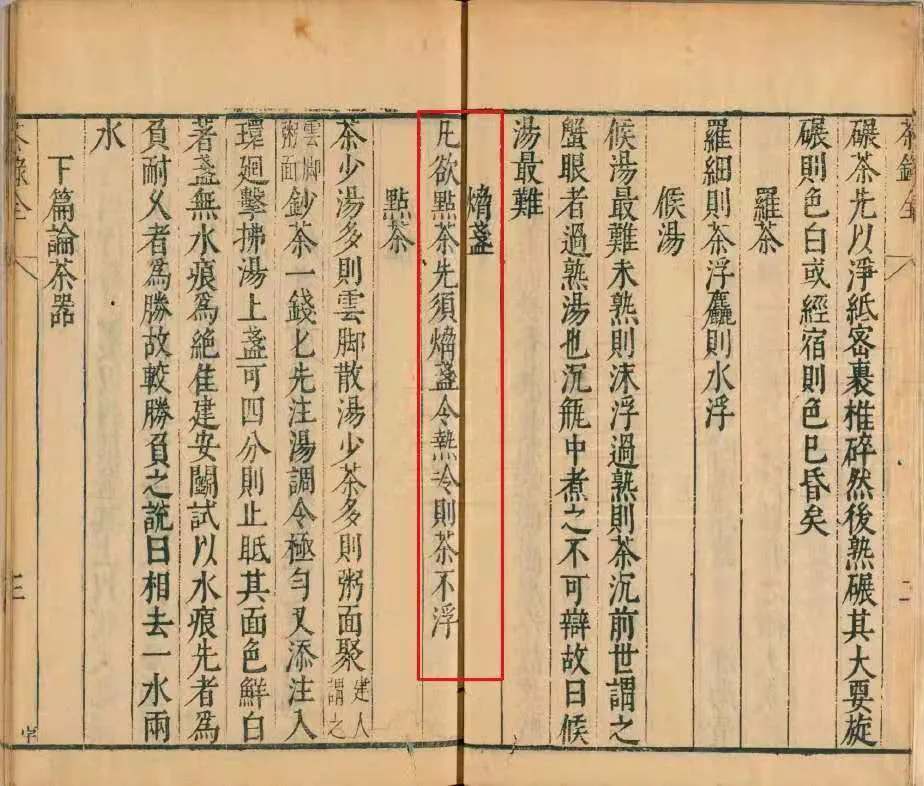 茶錄全
二
碾茶先以淨紙密裹椎碎然後熟碾其大要旋
碾則色白或經宿則色已昏矣
羅茶
羅細則茶浮麤則水浮
候湯
候湯最難未熟則沫浮過熟則茶沉前世謂之
蟹眼者過熟湯也沉瓶中煮之不可辯故曰候
湯最難
熁盞
凡欲點茶先須熁盞令熱冷則茶不浮
點茶
茶少湯多則雲脚散湯少茶多則粥面聚建人謂之
雲脚粥面鈔茶一錢匕先注湯調令極勻又添注入
環廻擊拂湯上盞可四分則止眡其面色鮮白
著盞無水痕爲絶佳建安鬭試以水痕先者爲
負耐乆者爲勝故較勝負之說曰相去一水兩
水
下篇論茶器
茶錄全
三